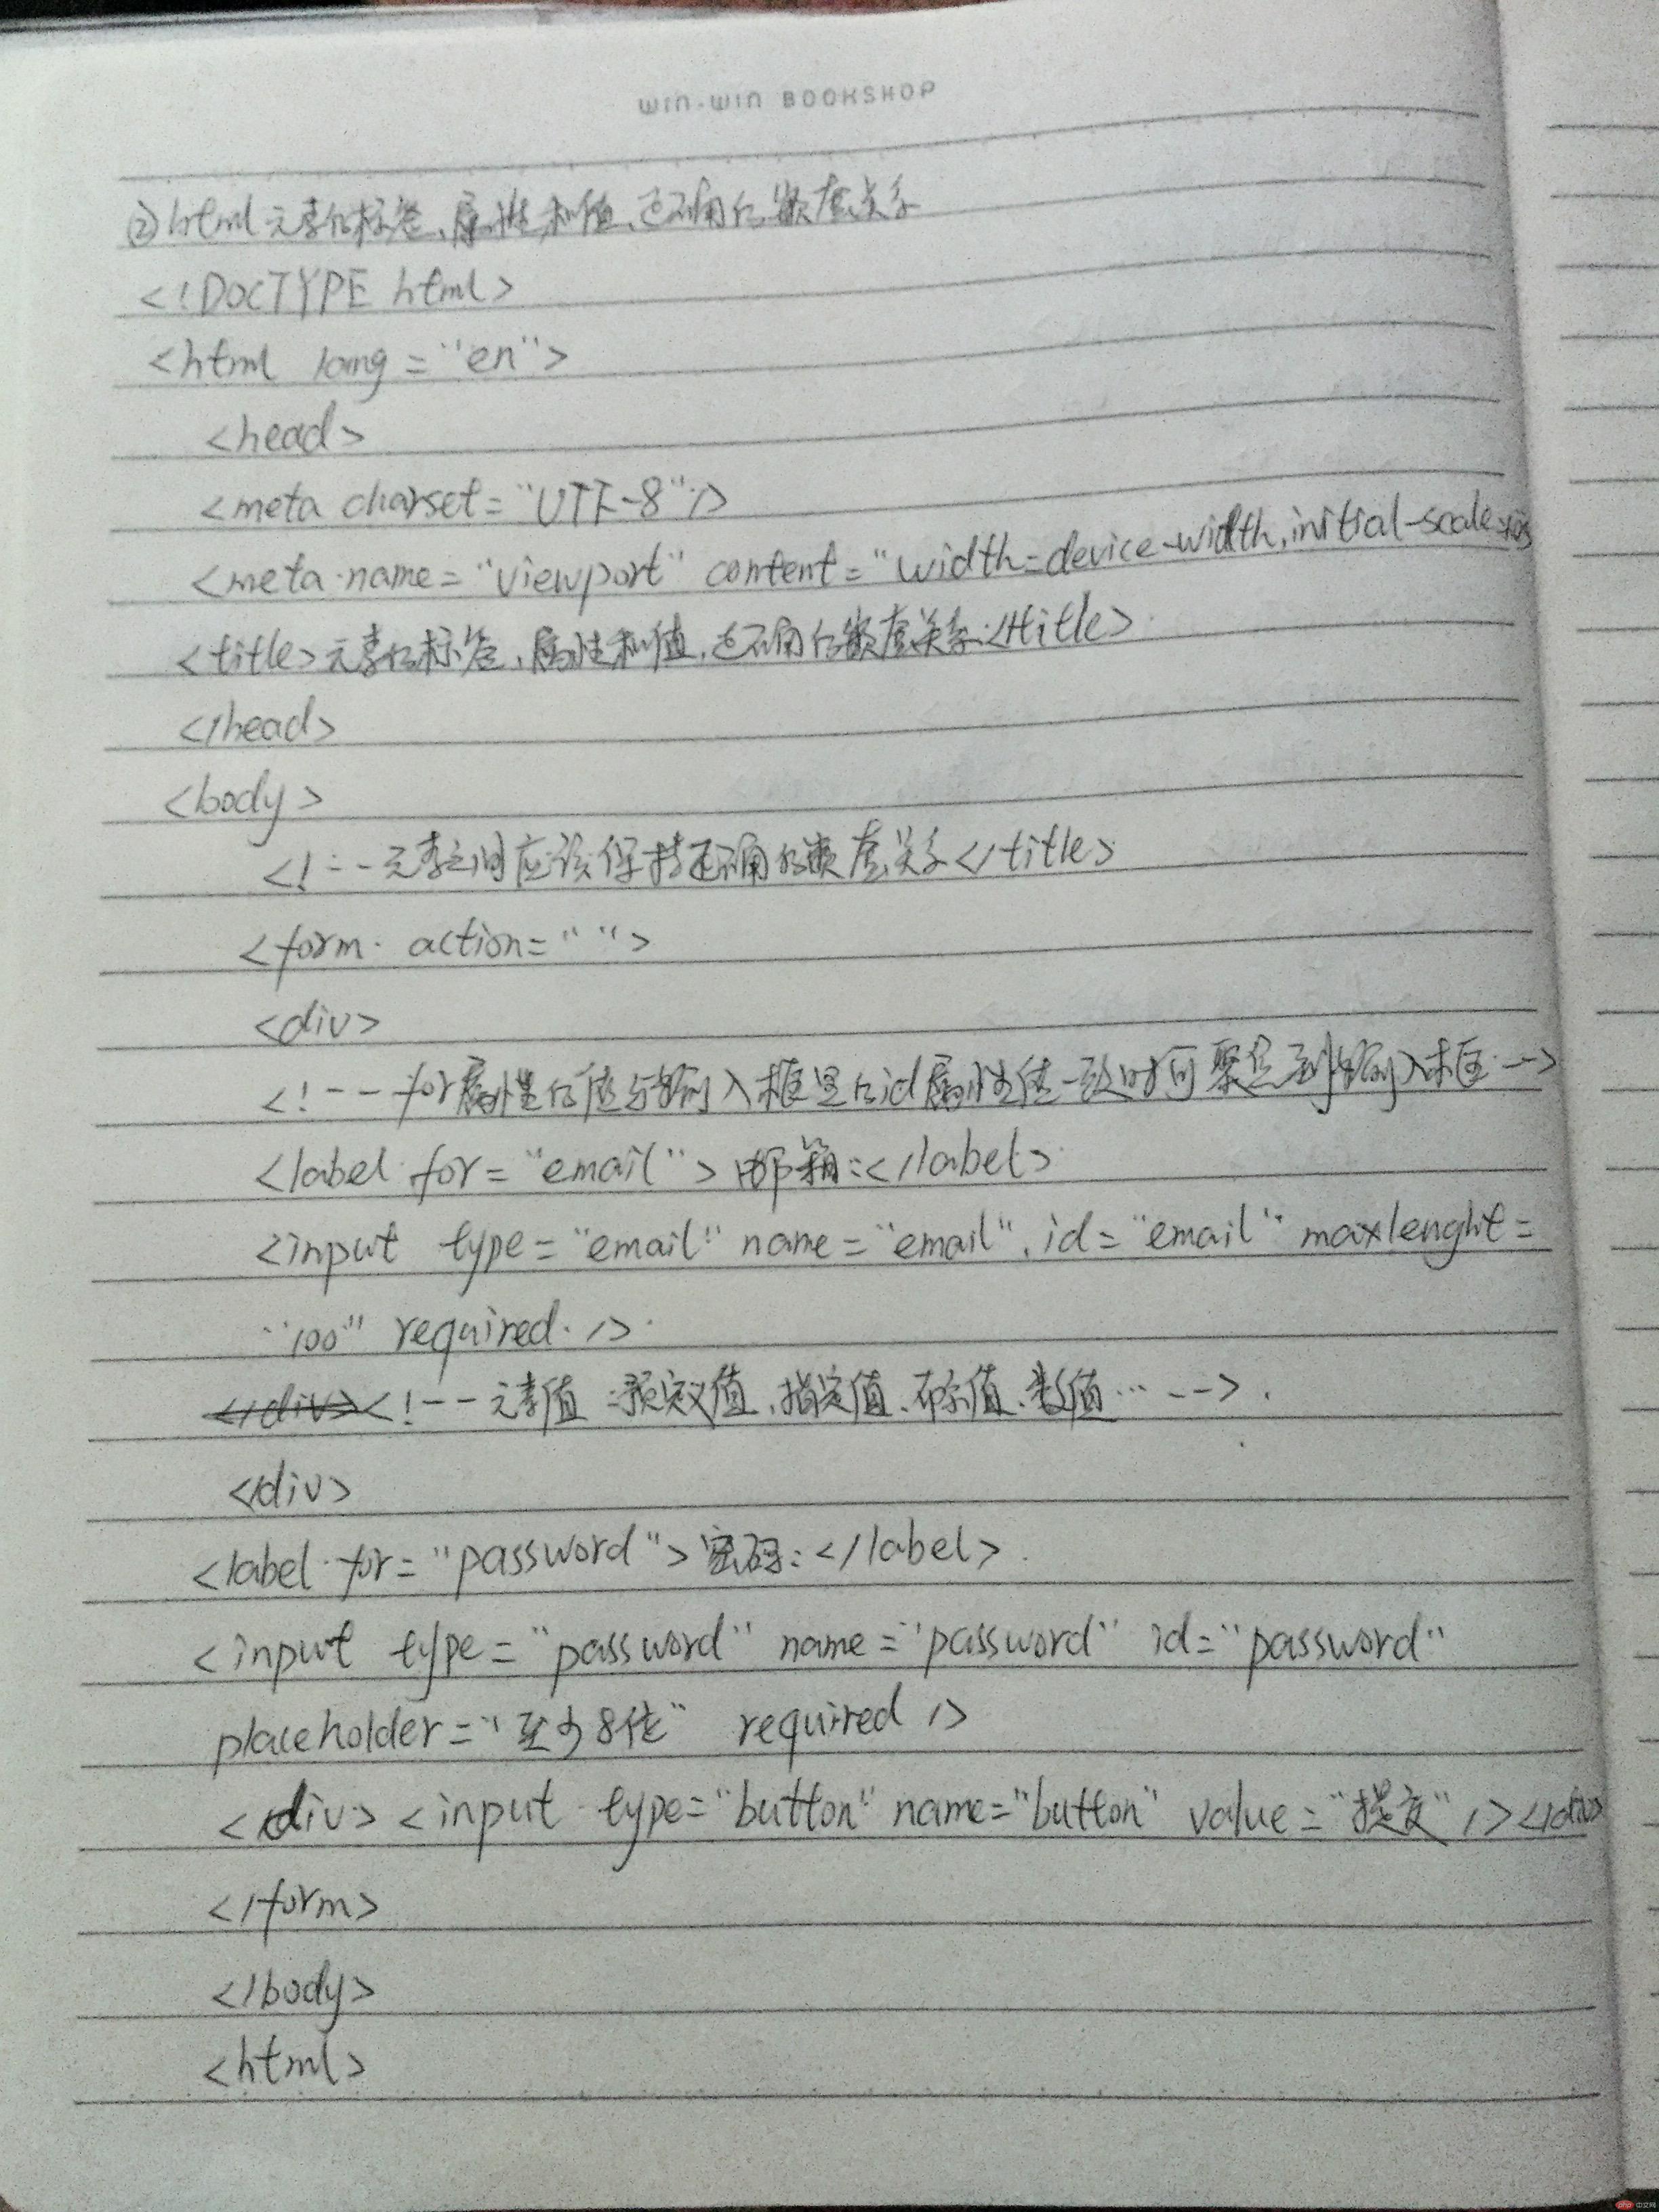 WIN-WIN BOOKSHOP
②html元素的标签、属性和值,正确的嵌套关系
<!DOCTYPE html>
<html lang="en">
<head>
<meta charset="UTF-8"/>
<meta name="viewport" content="width=device-width,initial-scale
<title>元素的标签、属性和值,正确的嵌套关系</title>
</head>
<body>
<!--元素之间应该保持正确的嵌套关系</title>
<form action="">
<div>
<!--for属性的值与输入框里的id属性值一致时可聚焦到输入框-->
<label for="email">邮箱:</label>
<input type="email" name="email" id="email" maxlenght=
"100" required />
</div><!--元素值:预定义值、指定值、布尔值、数值…-->
</div>
<label for="password">密码:</label>
<input type="password" name="password" id="password"
placeholder="至少8位" required />
<div><input type="button" name="button" value="提交"/></div>
</form>
</body>
<html>
php 中文网